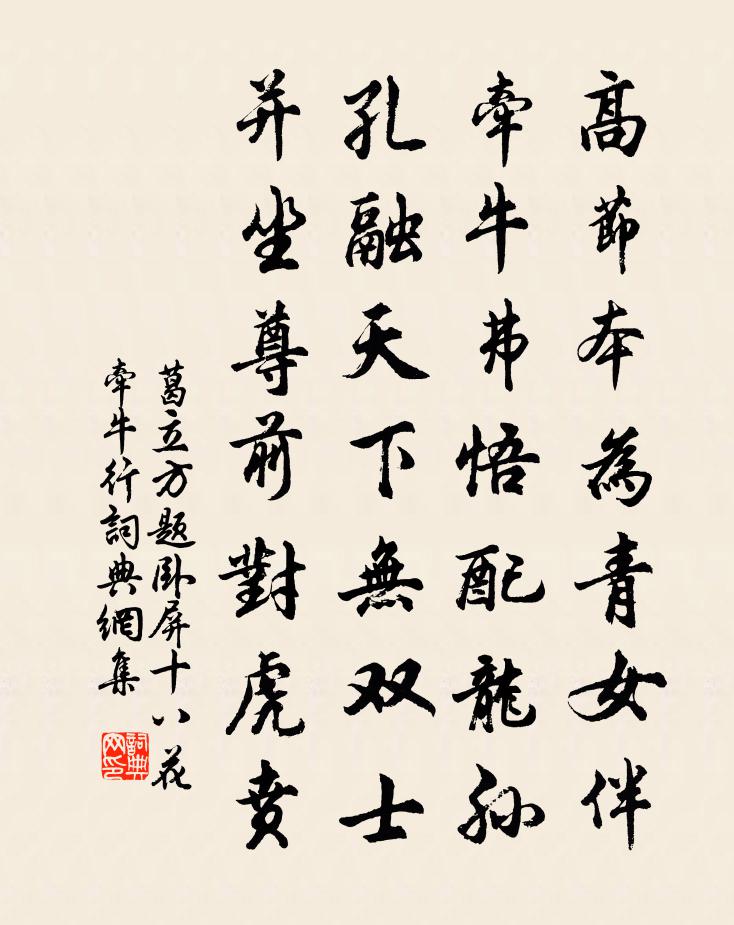 高節本為青女伴
牽牛弗悟配龍孫
孔融天下無双士
并坐尊前對虎賁
葛立方題卧屏十八花
牽牛行詞典網集
詞典网印